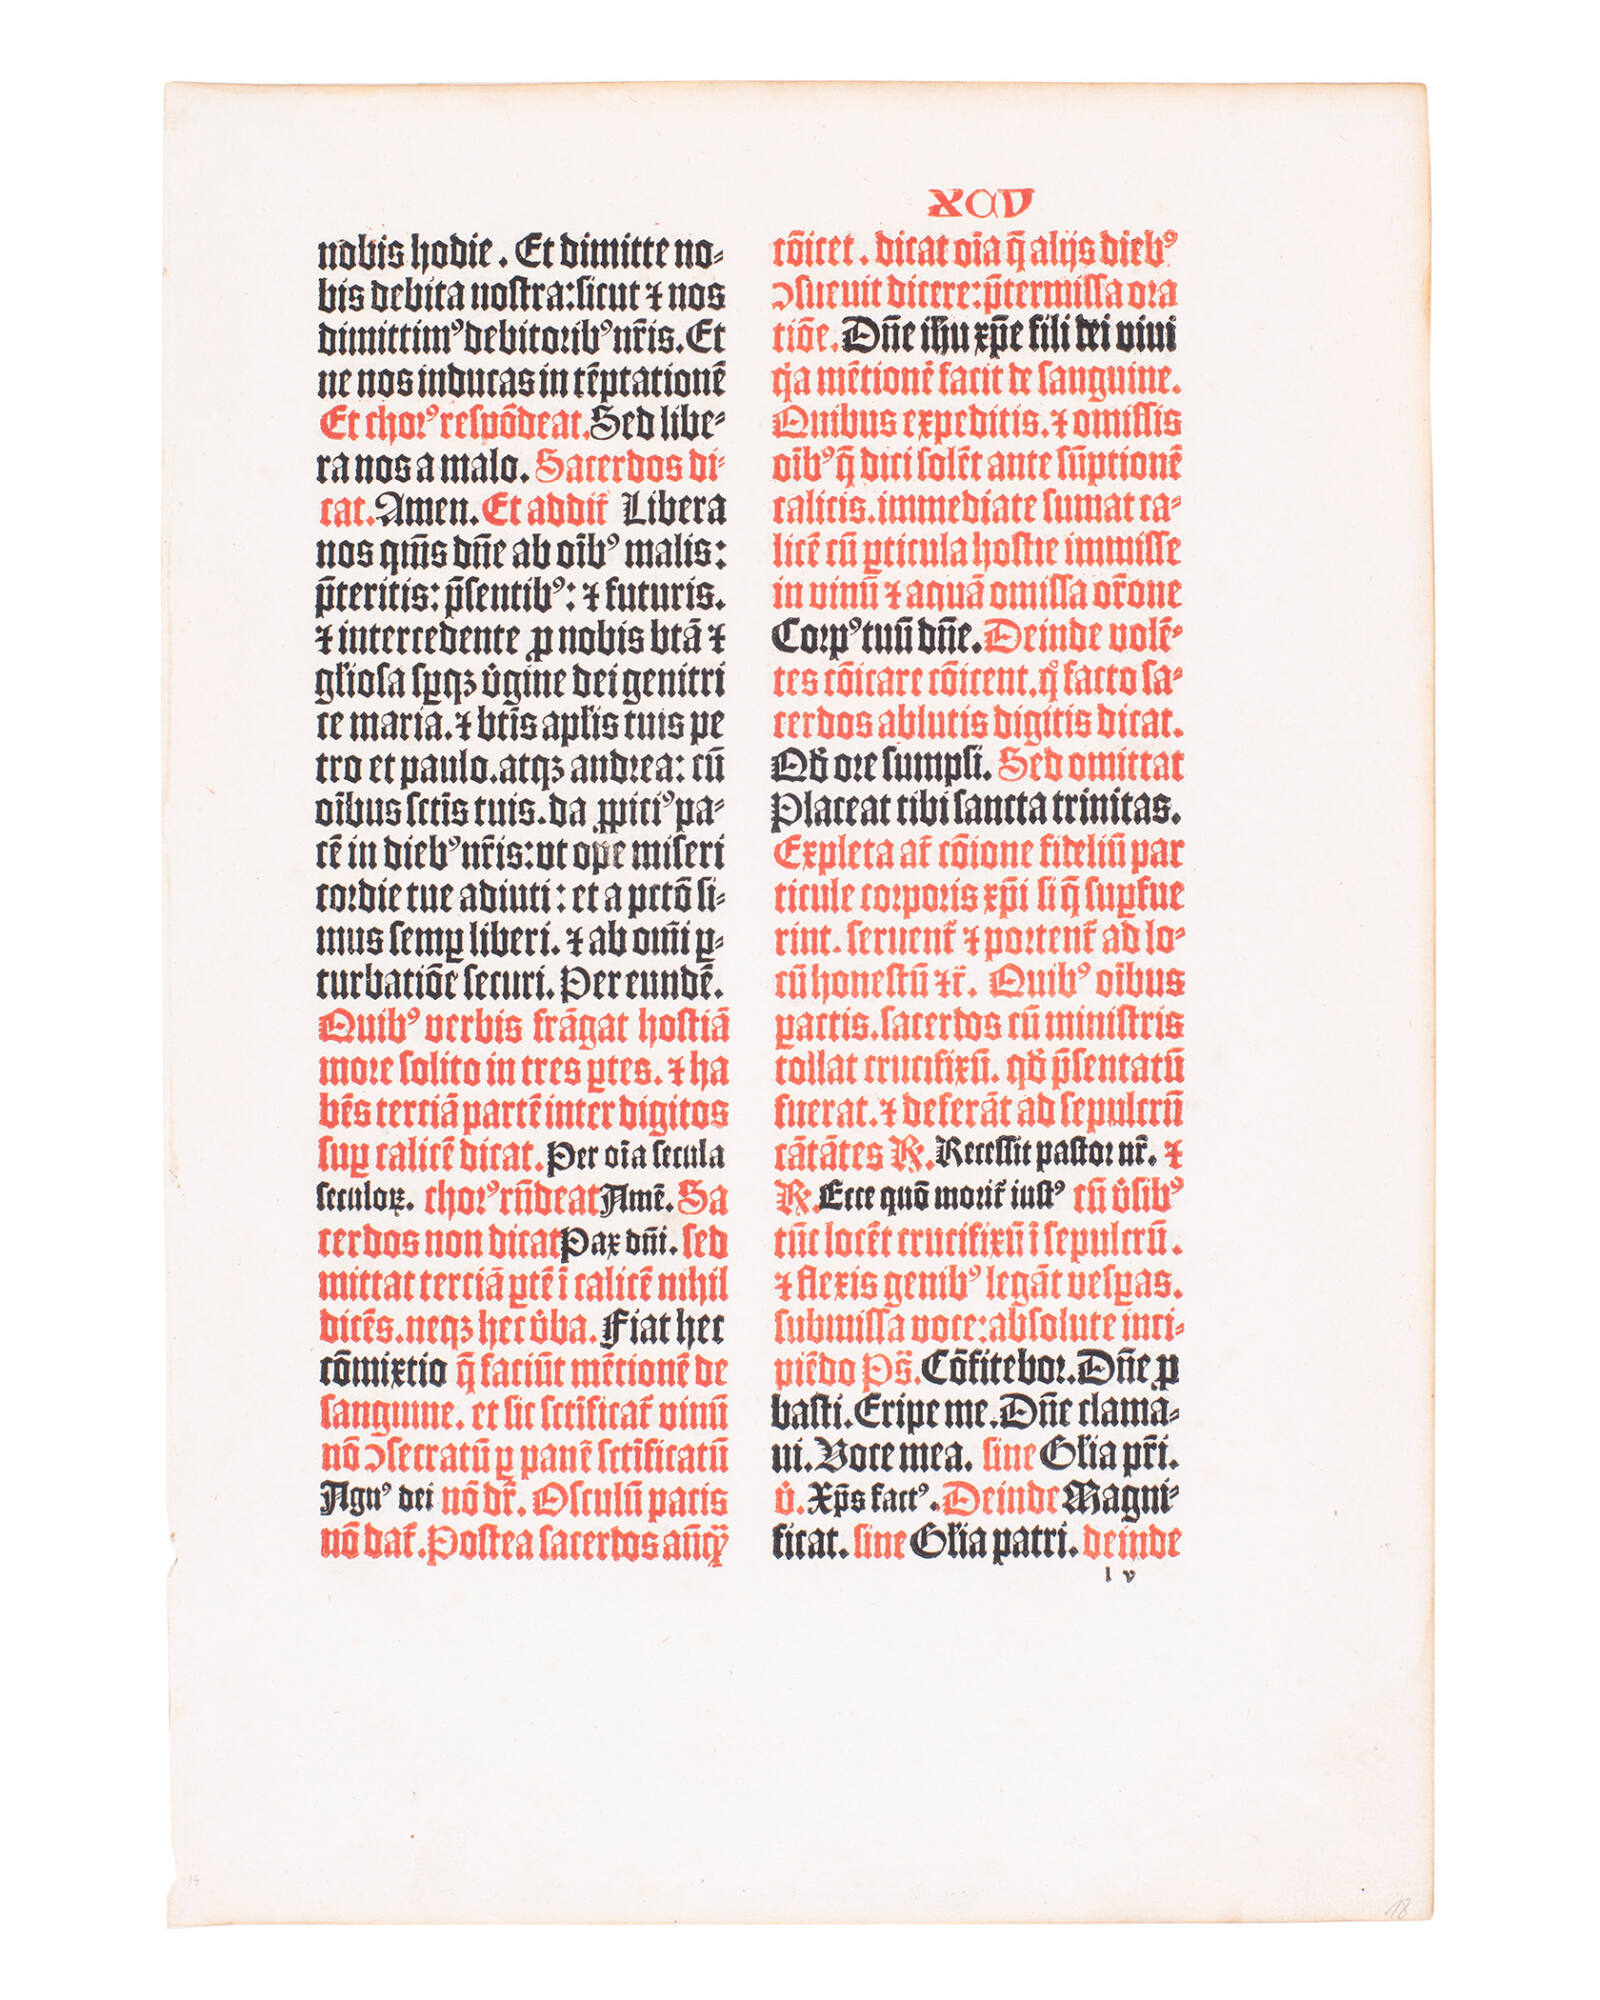 XCV
nobis hodie . Et dimitte no⸗
bis debita nostra: sicut ⁊ nos
dimittimꝰ debitoribꝰ nr̃is. Et
ne nos inducas in tẽptationẽ
Et chorꝰ respõdeat. Sed libe⸗
ra nos a malo. Sacerdos di⸗
cat. Amen. Et addit᷑ Libera
nos qm̃s dñe ab oĩbꝰ malis:
p̃teritis: p̃sentibꝰ: ⁊ futuris.
⁊ intercedente ꝓ nobis btã ⁊
gl̃iosa sꝑqꝫ v̓gine dei genitri
ce maria. ⁊ bt̃is apl̃is tuis pe
tro et paulo. atqꝫ andrea: cũ
oĩbus sct̃is tuis. da ꝓpiciꝰ pa⸗
cẽ in diebꝰ nr̃is: vt ope miseri
cordie tue adiuti: et a pctõ si⸗
mus semꝑ liberi. ⁊ ab om̃i ꝑ⸗
turbatiõe securi. Per eundẽ.
Quibꝰ verbis frãgat hostiã
more solito in tres ꝑtes. ⁊ ha
bẽs terciã partẽ inter digitos
suꝑ calicẽ dicat. Per oĩa secula
seculoꝝ. chorꝰ rñdeat Amẽ. Sa
cerdos non dicat Pax dñi. sed
mittat terciã ꝑtẽ ĩ calicẽ nihil
dicẽs. neqꝫ hec v̓ba. Fiat hec
cõmixtio q̃ faciũt mẽtionẽ de
sanguine. et sic sct̃ificat᷑ vinũ
nõ ↄsecratũ ꝑ panẽ sct̃ificatũ
Agnꝰ dei nõ dr̃. Osculũ pacis
nõ dat᷑. Postea sacerdos añqꝫ
cõicet . dicat oĩa q̃ alijs diebꝰ
ↄsueuit dicere: p̃termissa ora
tiõe. Dñe ihu xp̃e fili dei viui
q̃a mẽtionẽ facit de sanguine.
Quibus expeditis. ⁊ omissis
oĩbꝰ q̃ dici solẽt ante sũptionẽ
calicis. immediate sumat ca⸗
licẽ cũ ꝑticula hostie immisse
in vinũ ⁊ aquã omissa or̃one
Corpꝰ tuũ dñe. Deinde volẽ⸗
tes cõicare cõicent. qͦ facto sa⸗
cerdos ablutis digitis dicat.
Qd̓ ore sumpsi. Sed omittat
Placeat tibi sancta trinitas.
Expleta at᷑ cõione fideliũ par
ticule corporis xp̃i si q̃ suꝑfue
rint. seruent᷑ ⁊ portent᷑ ad lo⸗
cũ honestũ ⁊c̃. Quibꝰ oĩbus
ꝑactis. sacerdos cũ ministris
tollat crucifixũ. qd̓ p̃sentatũ
fuerat. ⁊ deferãt ad sepulcrũ
cãtãtes ℟. Recessit pastor nr̃. ⁊
℟. Ecce quõ morit᷑ iustꝰ cũ v̓sibꝰ
tũc locẽt crucifixũ ĩ sepulcrũ .
⁊ flexis genibꝰ legãt vesꝑas.
submissa voce: absolute inci⸗
piẽdo Ps̃. Cõfitebor. Dñe ꝓ
basti. Eripe me. Dñe clama⸗
ui. Voce mea. sine Gl̃ia pr̃i.
v̓. Xp̃s factꝰ. Deinde Magni⸗
ficat. sine Gl̃ia patri. deinde
l v
18